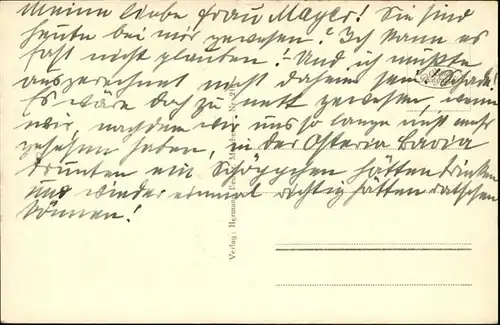 Meine liebe Frau Mayer! Sie sind
heute bei mir gewesen? Ich kann es
fast nicht glauben! Und ich mußte
ausgerechnet nicht daheim sein! Schade!
Es wäre doch zu nett gewesen, wenn
wir, nachdem wir uns so lange nicht mehr
gesehen haben, in der Osteria Bavia
drunten ein Schöppchen hätten trinken
und wieder einmal richtig hätten ratschen
können!
Verlag: Hermann